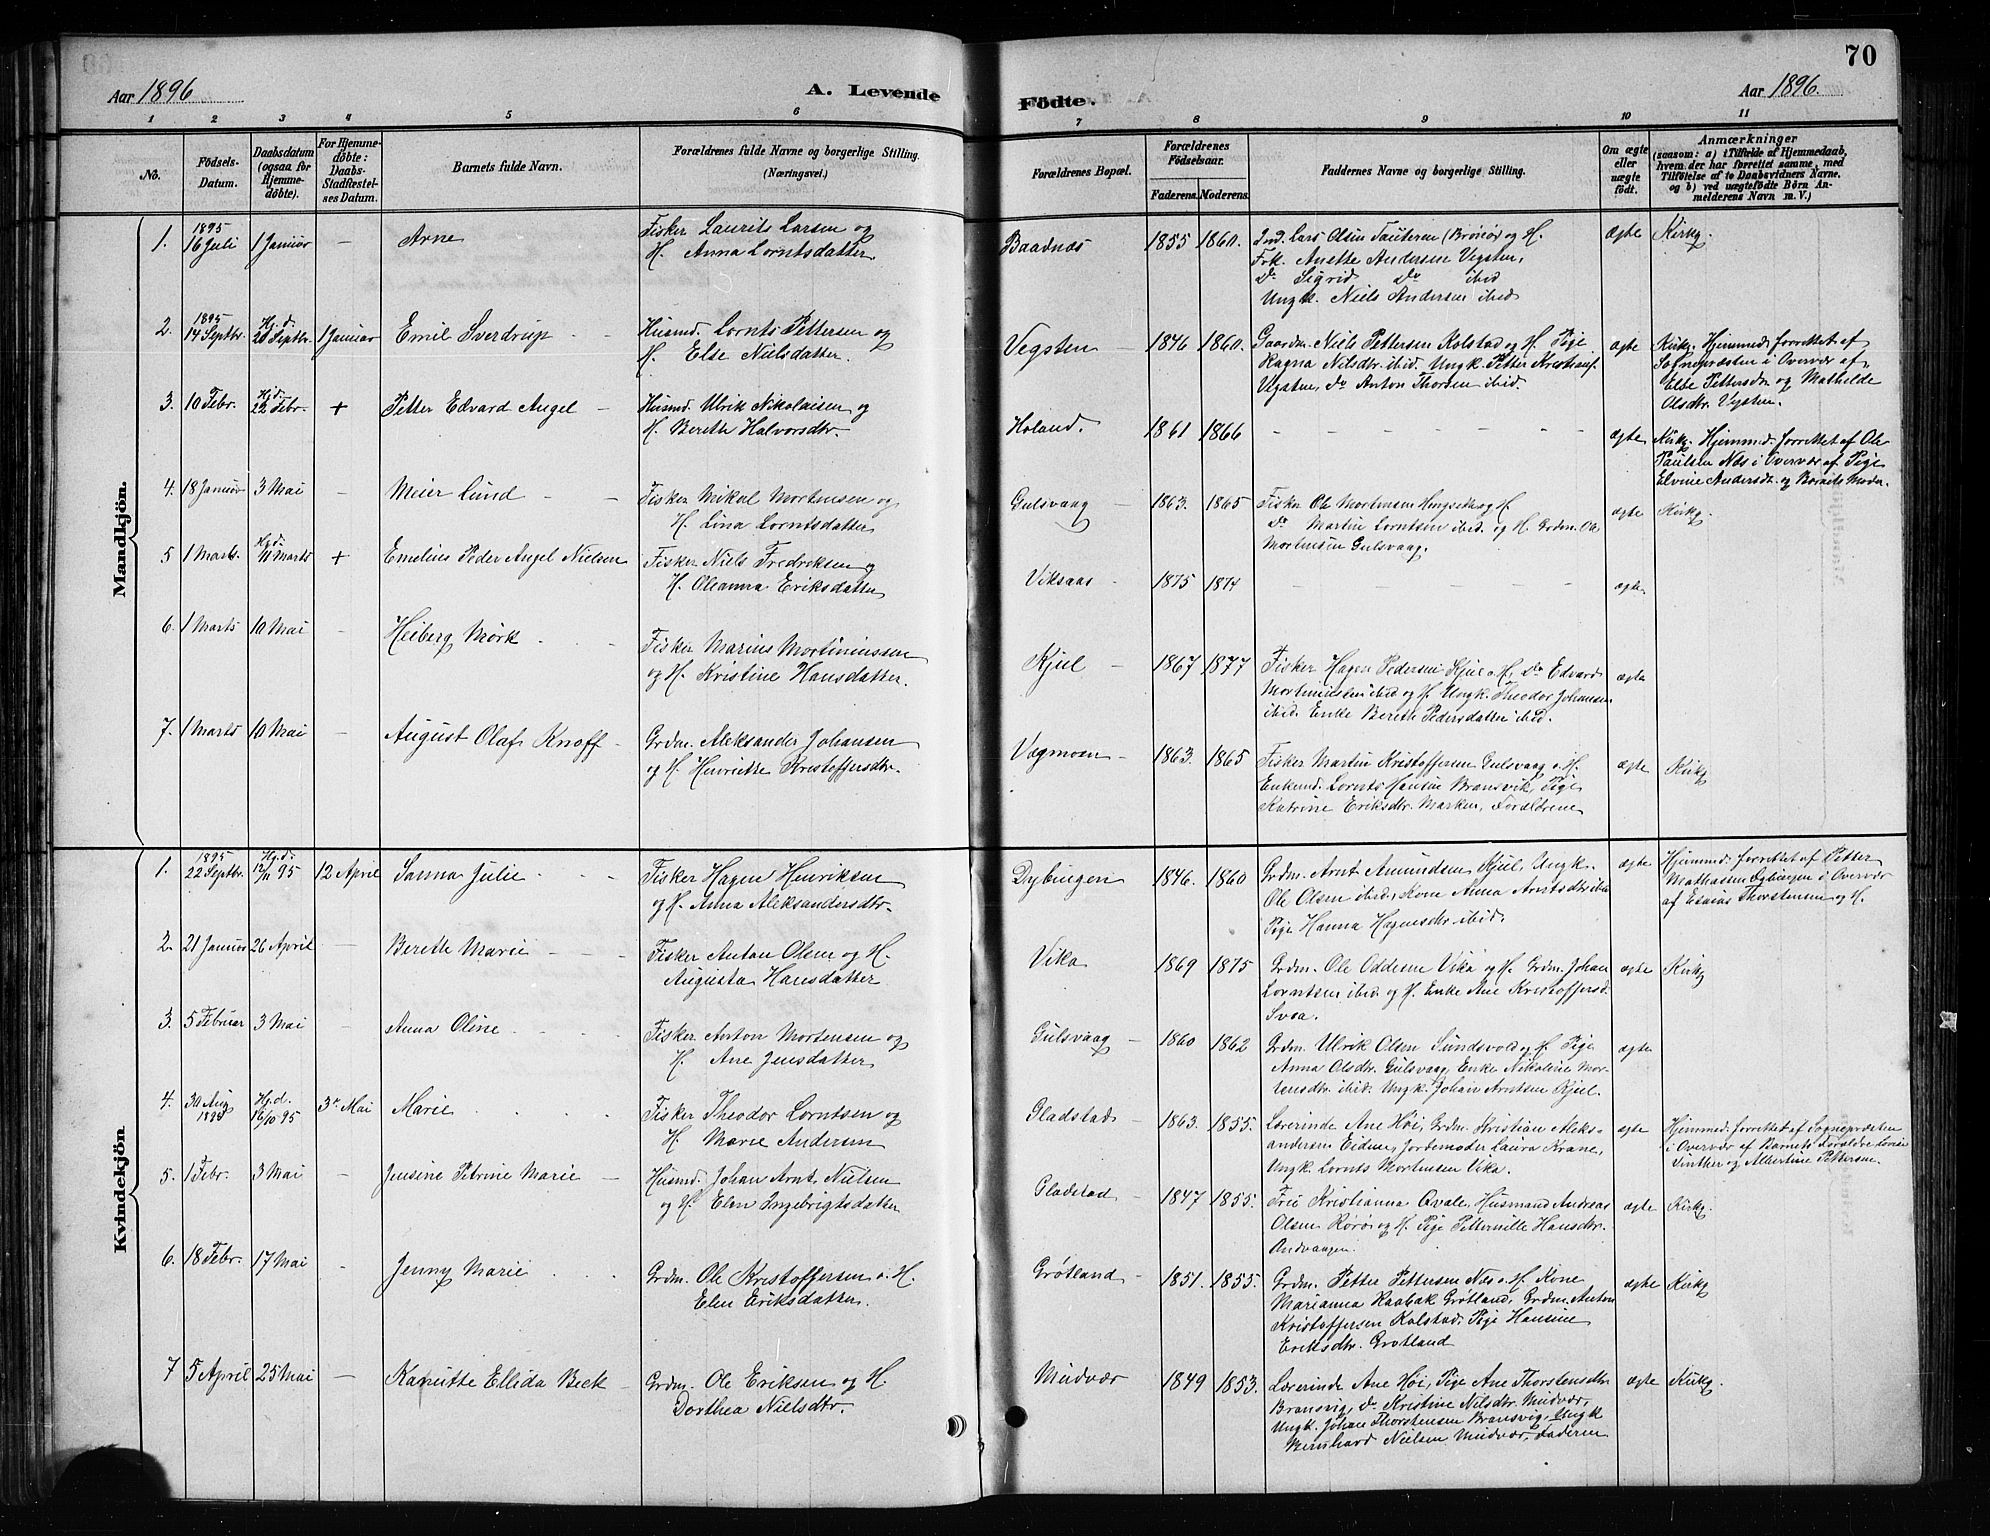 70
Aar 1896
A. Levende
Födte.
Aar 1896.
1 2 3 4 5 6 7 8 9 10 11
No.
Födsels-Datum.
Daabsdatum (ogsaa for Hjemmedöbte).
For Hjemmedöbte: Daabs-Stadfæstelses Datum.
Barnets fulde Navn.
Forældrenes fulde Navne og borgerlige Stilling.
(Næringsvei.)
Forældrenes Bopæl.
Forældrenes Födselsaar.
Faderens. Moderens.
Faddernes Navne og borgerlige Stilling.
Om ægte eller uægte födt.
Anmærkninger
(saasom: a) i Tilfælde af Hjemmedaab,
hvem der har forrettet samme, med
Tilföielse af to Daabsvidners Navne,
og b) ved uægtefödte Börn Anmelderens Navn m. V.)
Mandkjön.
1. 1895 16 Juli 1 Januar – Arne
Fisker Laurits Larsen og
H. Anna Lorntsdatter.
Baadnæs 1855 1860.
Ind. Lars Olsen Tauteren (Brönö) og H.
Frk. Anette Andersen Vegsten,
Do Sigrid Do ibid
Ungk. Niels Andersen ibid
ægte Kirkg.
2. 1895 14 Septbr. Hj.d. 20 Septbr. 1 Januar Emil Sverdrup
Husmd. Lornts Pettersen og
H. Else Nielsdatter.
Vegsten – 1846 1860.
Gaardm. Niels Pettersen Kolstad og H. Pige
Ragna Nilsdtr. ibid. Ungk. Petter Kristians.
Vegsten, Do Anton Thorsen ibid.
ægte Kirkg. Hjemmed. forrettet af
Sognepræsten i Overvær af
Else Pettersdtr og Mathilde
Olsdtr. Vegsten.
3. 10 Febr. Hj.d. 22 Febr. + Petter Edvard Angel –
Husmd. Ulrik Nikolaisen og
H. Berethe Halvorsdtr.
Holand. 1861 1866
ægte Kirkg. Hjemmed. forrettet af Ole
Paulsen Næs i Overvær af Pige
Elvine Andersdt. og Barnets Moder.
4. 18 Januar 3 Mai – Meier Lund
Fisker Mikal Mortensen og
H. Lina Lorntsdatter
Gulsvaag – 1863. 1865
Fisker Ole Mortensen og H.
Do Martin Lorntsen ibid. og H. Grdm. Ole
Mortensen Gulsvaag.
ægte Kirkg.
5 1 Marts. Hj.d. 11 Marts + Emelius Peder Angel Nielsen
Fisker Niels Fredriksen og
H. Oleanna Eriksdatter
Viksaas 1875 1874
ægte
6. 1 Marts 10 Mai – Heiberg Mørk
Fisker Marius Mortiniussen
og H. Kristine Hansdatter.
Kjul – 1867 1877
Fisker Hagen Pedersen Kjul o. H. Do Edvard
Mortinussen ibid og H. Ungk. Theodor Johansen
ibid. Enke Berethe Pedersdatter ibid.
ægte
7. 1 Marts 10 Mai – August Olaf Knoff –
Grdm. Aleksander Johansen
og H. Henriette Kristoffersdtr.
Vegmoen – 1863. 1865
Fisker Martin Kristoffersen Gulsvaag o. H.
Enkemd. Lornts Hansen Bransvik, Pige
Katrine Eriksdtr. Marken, Forældrene
ægte Kirkg
Kvindekjön
1. 1895 22 Septbr. Hj.d. 12/11 95 12 April Sanna Julie
Fisker Hagen Henriksen
og H. Anna Aleksandersdtr.
Dybingen 1846. 1860
Grdm. Arnt Amundsen Kjul, Ungk.
Ole Olsen ibid., Kone Anna Arntsdtr ibid
Pige Hanna Hagensdtr. ibid.
ægte Hjemmed. forrettet af Petter
Mathiasen Dybingen i Overvær
af Esaias Thorstensen og H.
2. 21 Januar 26 April – Berethe Marie
Fisker Anton Olsen og H.
Augusta Hansdatter
Vika 1869 1875
Grdm. Ole Oddesen Vika og H. Grdm. Johan
Lorntsen ibid og H. Enke Ane Kristoffersd.
Svea.
ægte Kirkg
3. 5 Februar 3 Mai – Anna Oline
Fisker Anton Mortensen og
H. Ane Jensdatter
Gulsvaag – 1860 1862
Grdm. Ulrik Olsen Sundsvold og H. Pige
Anna Olsdtr. Gulsvaag, Enke Nikoline Mortensdtr. ibid. Ungk. Johan Arntsen Kjul.
ægte
4. 30 Aug 1895 Hj.d. 16/10 95 3. Mai Marie
Fisker Theodor Lorntsen og
H. Marie Andersen
Gladstad – 1863. 1855.
Lærerinde Ane Høi, Grdm. Kristian Aleksandersen Eidem, Jordemoder Laura Krane,
Ungk. Lornts Mortensen Vika.
ægte Hjemmed. forrettet af Sognepræsten
i Overvær af Barnets Forældre
og Albertine Pettersen.
5. 1 Febr. 3 Mai – Jensine Petrine Marie –
Husmd. Johan Arnt Nielsen
og H. Elen Ingebrigtsdatter
Gladstad – 1847 1855.
Fru Kristianna Qvale, Husmand Andreas
Olsen Rörö og H. Pige Petternille Hansdtr.
Andvaagen.
ægte Kirkg.
6. 18 Febr. 17 Mai – Jenny Marie
Grdm. Ole Kristoffersen o. H.
Elen Eriksdatter.
Grøtland – 1851. 1855.
Grdm. Petter Pettersen Næs o. H. Kone
Marianna Raabak Grøtland, Grdm. Anton
Kristoffersen Kolstad. Pige Hansine
Eriksdtr. Grøtland
ægte Kirkg
7 5 April 25 Mai – Kanutte Ellida Beck –
Grdm. Ole Eriksen og H.
Dorthea Nielsdtr.
Mudvær 1849 1853.
Lærerinde Ane Høi, Pige Ane Thorstensdtr
Bransvig, Do Kristine Nilsdtr. Mudvær,
Ungk. Johan Thorstensen Bransvig, Ungk
Bernhard Nielsen Mudvær, Faderen
ægte Kirkg.